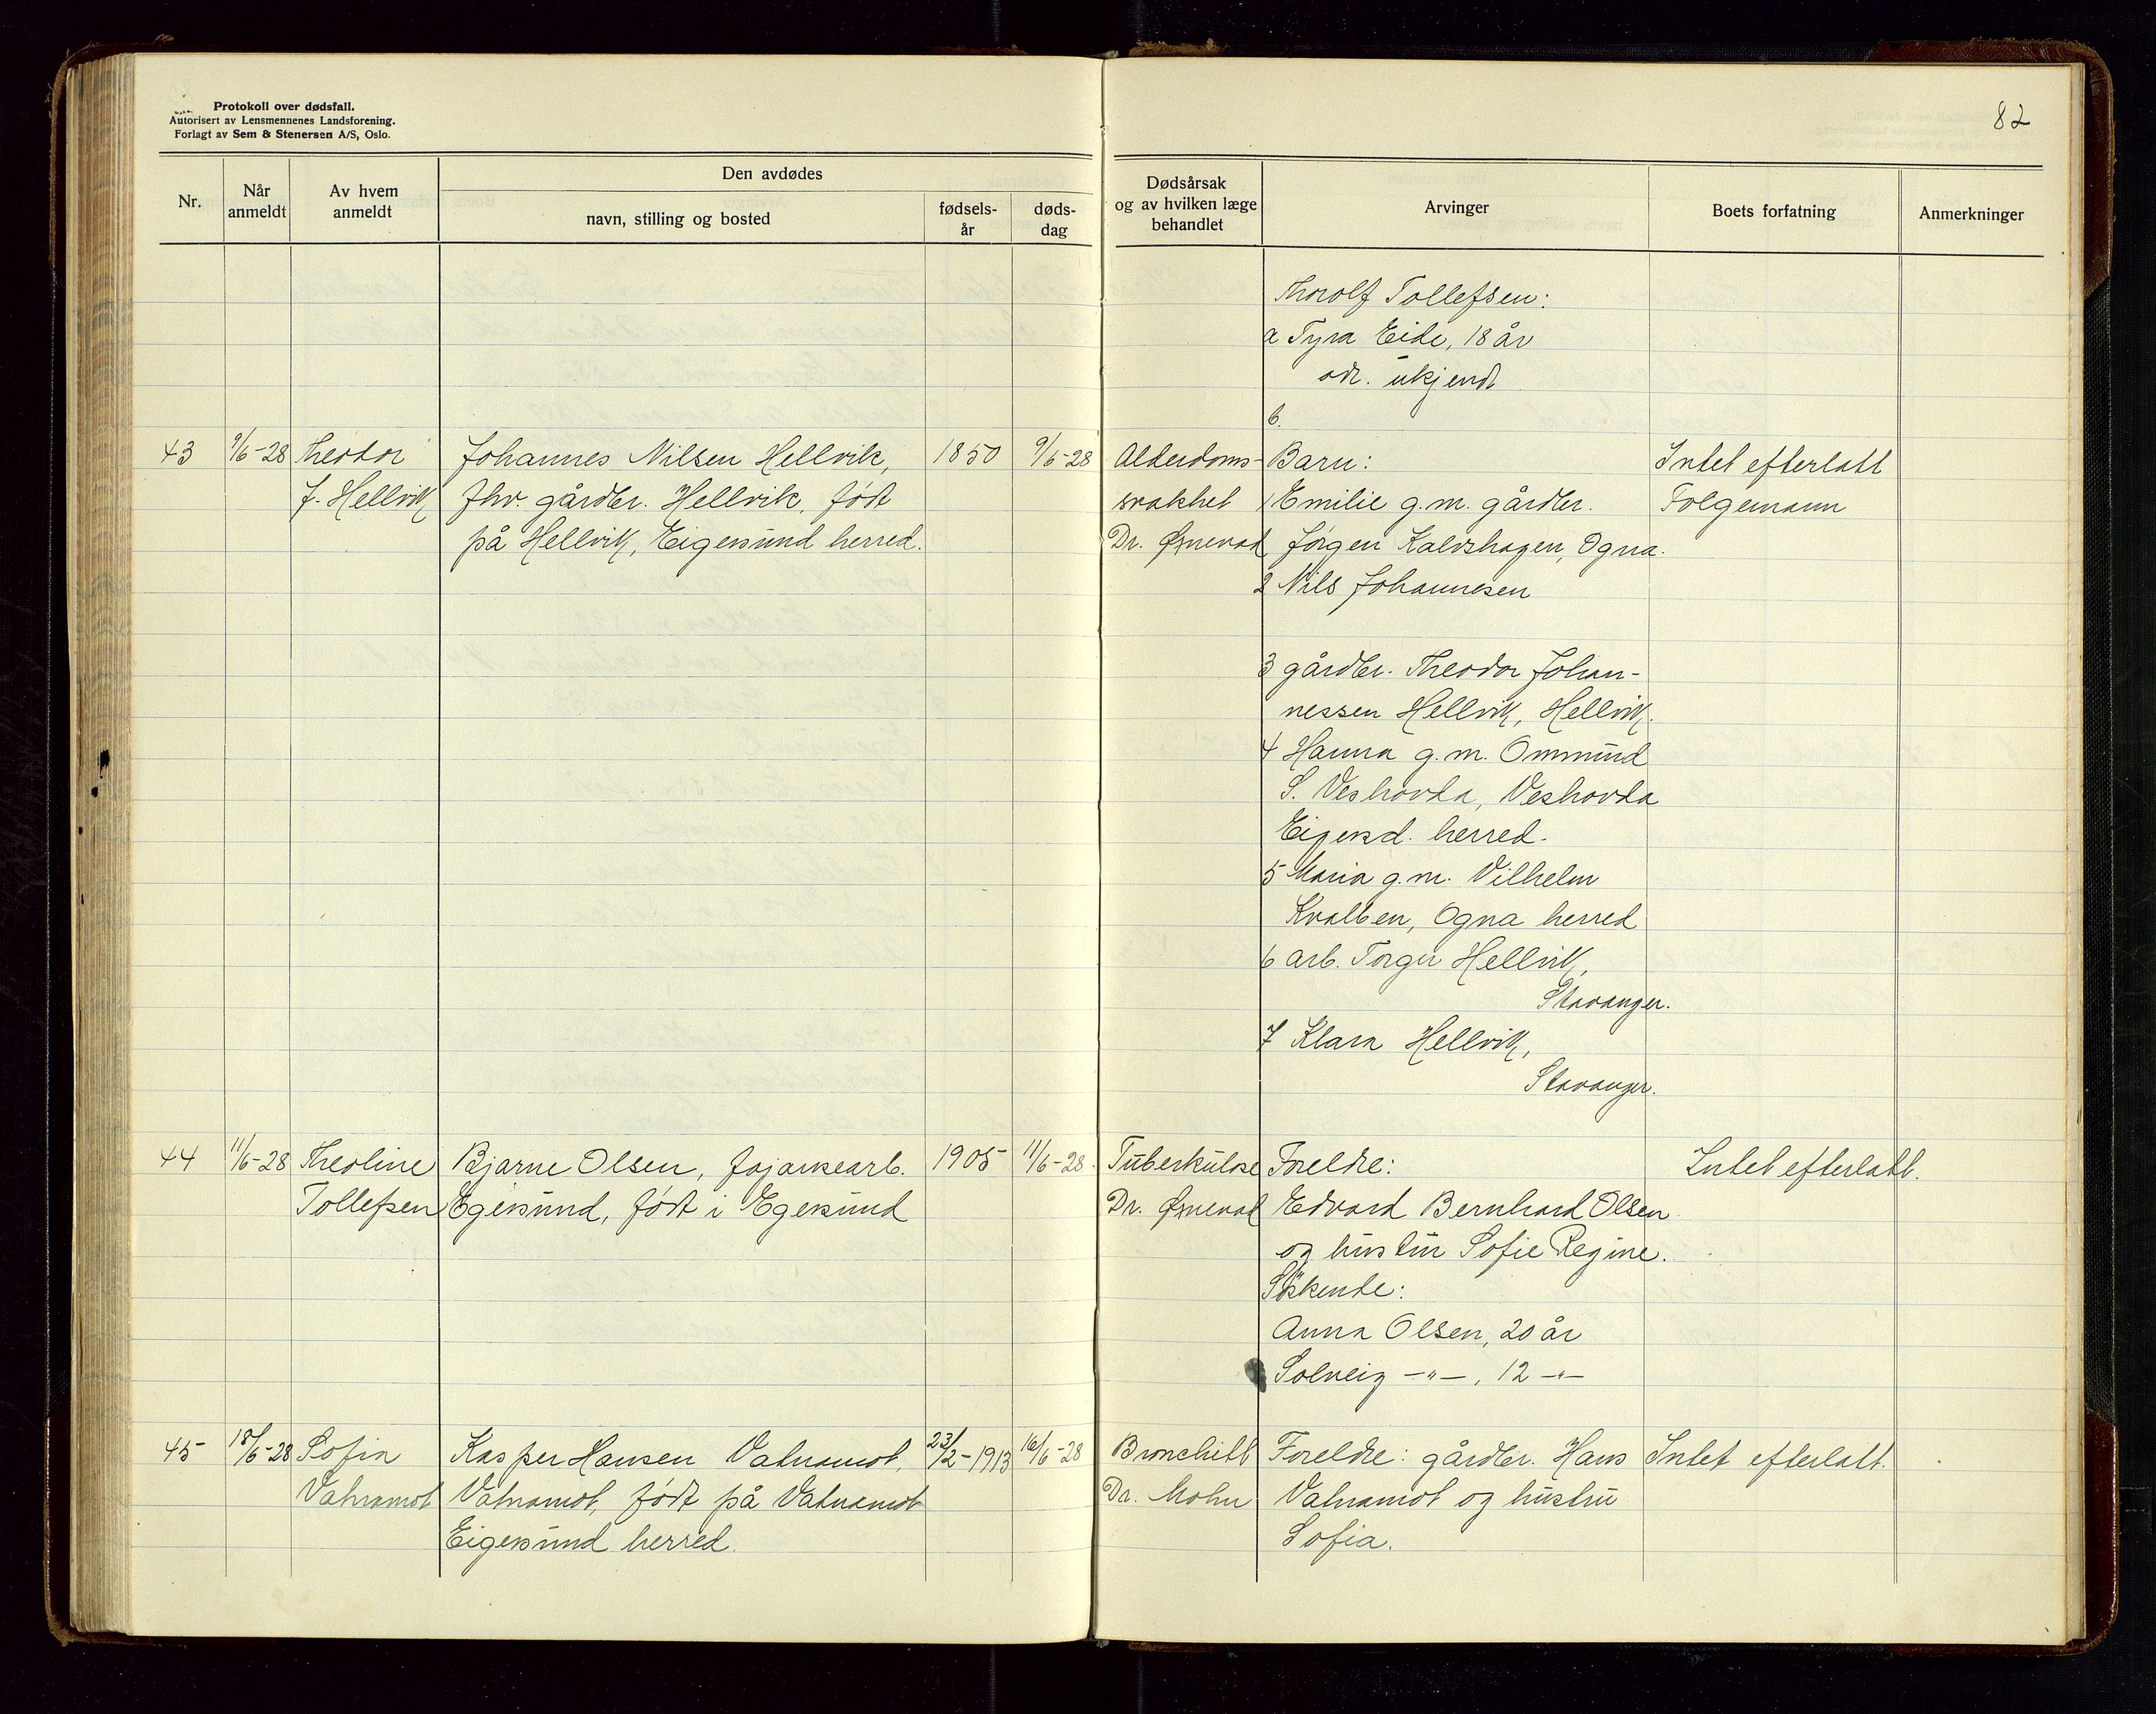 Protokoll over dødsfall.
Autorisert av Lensmennenes Landsforening.
Forlagt av Sem & Stenersen A/S, Oslo.
82
Nr.
Når anmeldt
Av hvem anmeldt
Den avdødes
navn, stilling og bosted
fødsels-år
døds-dag
Dødsårsak og av hvilken læge behandlet
Arvinger
Boets forfatning
Anmerkninger
Thorolf Tollefsen:
a Tyra Eide, 18 år
adr. ukjendt
b.
43 9/6-28 Theodor Johannes Nilsen Hellvik, 1850 9/6-28 Alderdoms- Barn: Intet efterlatt
J. Hellvik fhv. gårdbr. Hellvik, født svakhet 1 Emilie g.m. gårdbr. Folgemann
på Hellvik, Eigersund herred. Dr. Ørnevad Jørgen Kaldshagen, Ogna.
2 Nils Johannesen
3 gårdbr. Theodor Johan-
nessen Hellvik, Hellvik.
4 Hanna g.m. Ommund
S. Veshovda, Veshovda
Eigersd. herred.
5 Maria g.m. Vilhelm
Kvalben, Ogna herred
6 arb. Torger Hellvik,
Stavanger.
7 Klara Hellvik,
Stavanger.
44 11/6-28 Theoline Bjarne Olsen, fajansearb. 1905 11/6-28. Tuberkulose Foreldre: Intet efterlatt.
Tollefsen Egersund, født i Egersund Dr. Ørnevad Edvard Bernhard Olsen
og hustru Sofie Regine.
Søskende:
Anna Olsen, 20 år
Solveig -"-, 12 -"-
45 18/6-28 Sofia Kasper Hansen Vatnamot, 23/2-1913 16/6-28 Bronchitt Foreldre: gårdbr. Hans Intet efterlatt.
Vatnamot Vatnamot, født på Vatnamot Dr. Mohn Vatnamot og hustru
Eigersund herred. Sofia.